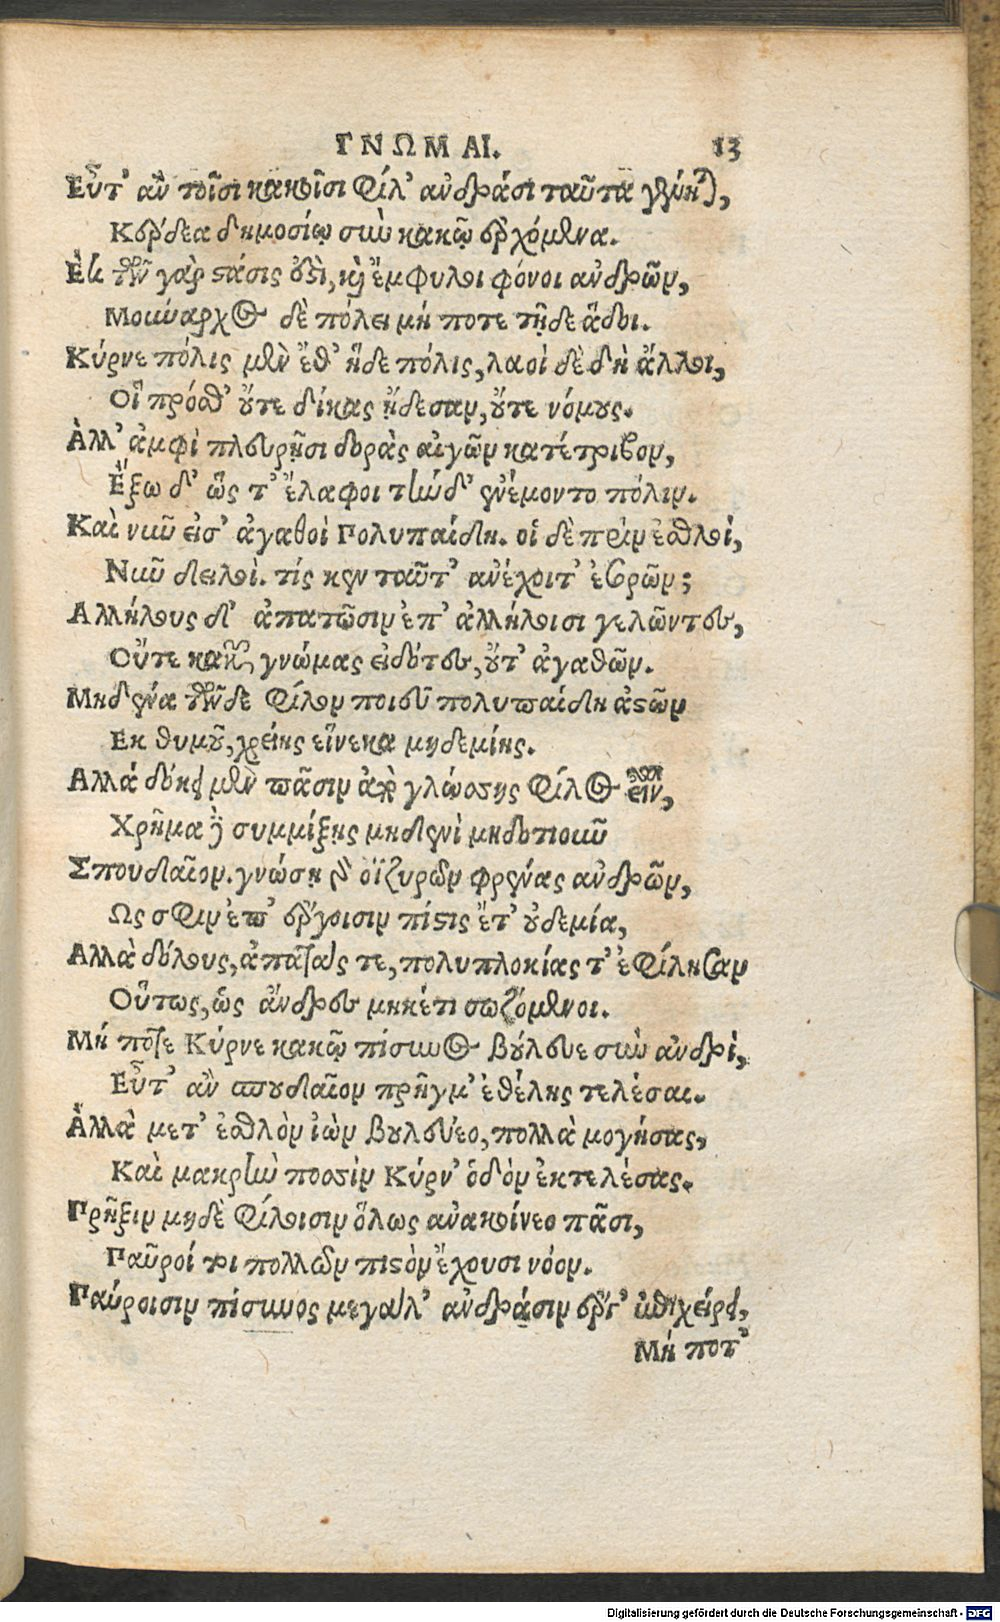 ΓΝΩΜΑΙ. 13
Εὖτ' ἂν τοῖσι κακοῖσι φίλ' ἀνδράσι ταῦτα γένηται,
Κέρδεα δημοσίῳ σὺν κακῷ ἐρχόμενα.
Ἐκ τῶν γὰρ στάσις ἐστὶ, καὶ ἔμφυλοι φόνοι ἀνδρῶν,
Μούναρχος δὲ πόλει μή ποτε τῇδε ἅδοι.
Κύρνε πόλις μὲν ἔθ' ἥδε πόλις, λαοὶ δὲ δὴ ἄλλοι,
Οἳ πρόσθ' οὔτε δίκας ᾔδεσαν, οὔτε νόμους.
Ἀλλ' ἀμφὶ πλευρῇσι δορὰς αἰγῶν κατέτριβον,
Ἔξω δ' ὥς τ' ἔλαφοι τήνδ' ἐνέμοντο πόλιν.
Καὶ νῦν εἰσ' ἀγαθοὶ Πολυπαίδη. οἱ δὲ πρὶν ἐσθλοὶ,
Νῦν δειλοί. τίς κεν ταῦτ' ἀνέχοιτ' ἐσορῶν;
Αλλήλους δ' ἀπατῶσιν ἐπ' ἀλλήλοισι γελῶντες,
Οὔτε κακῶν γνώμας εἰδότες, οὔτ' ἀγαθῶν.
Μηδένα τῶνδε φίλον ποιοῦ πολυπαίδη ἀστῶν
Εκ θυμοῦ, χρείης εἵνεκα μηδεμίης.
Αλλὰ δόκει μὲν πᾶσιν ἀπὸ γλώσσης φίλος εἶναι,
Χρῆμα δὲ συμμίξῃς μηδενὶ μηδοτιοῦν
Σπουδαῖον. γνώσῃ γὰρ ὀϊζυρῶν φρένας ἀνδρῶν,
Ως σφιν ἐπ' ἔργοισιν πίστις ἔτ' οὐδεμία,
Αλλὰ δόλους, ἀπάτας τε, πολυπλοκίας τ' ἐφίλησαν
Οὕτως, ὡς ἄνδρες μηκέτι σωζόμενοι.
Μή ποτε Κύρνε κακῷ πίσυνος βούλευε σὺν ἀνδρὶ,
Εὖτ' ἂν σπουδαῖον πρῆγμ' ἐθέλῃς τελέσαι.
Ἀλλὰ μετ' ἐσθλὸν ἰὼν βουλεύεο, πολλὰ μογήσας,
Καὶ μακρὴν ποσσὶν Κύρν' ὁδὸν ἐκτελέσας.
Πρῆξιν μηδὲ φίλοισιν ὅλως ἀνακοίνεο πᾶσι,
Παῦροί τοι πολλῶν πιστὸν ἔχουσι νόον.
Παύροισιν πίσυνος μεγάλ' ἀνδράσιν ἔργ' ἐπιχείρει,
Μή ποτ'
Digitalisierung gefördert durch die Deutsche Forschungsgemeinschaft - DFG